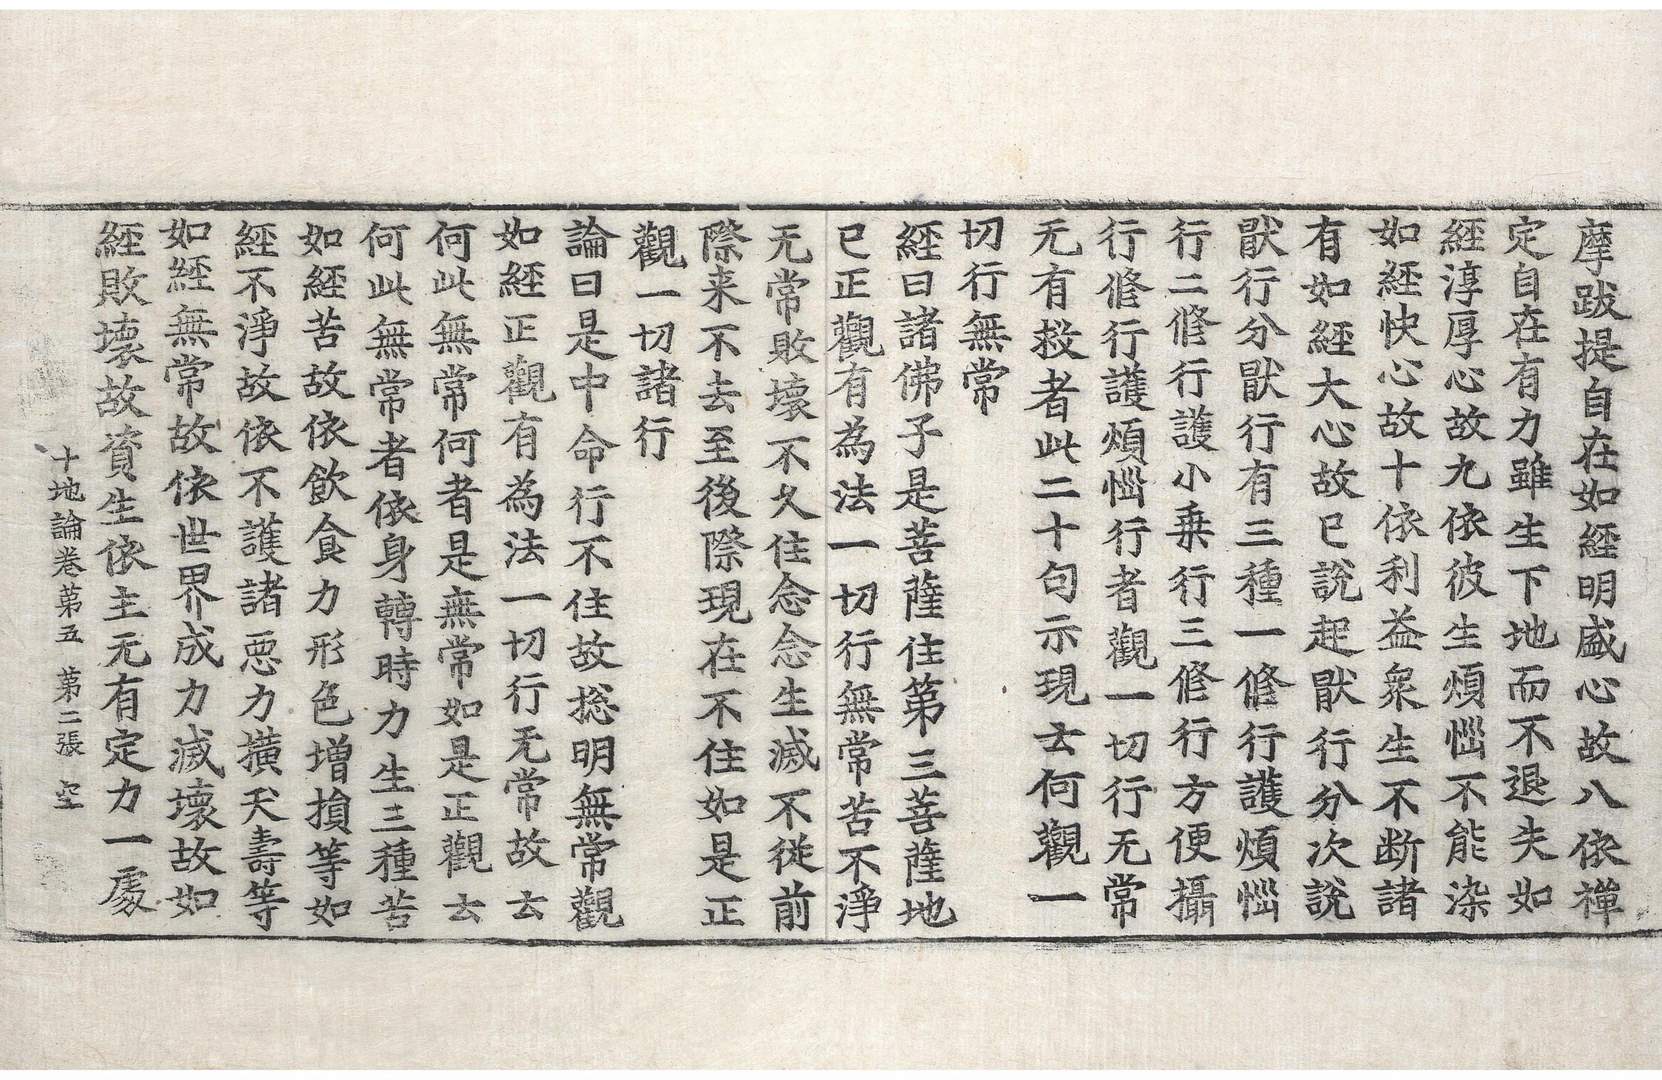 摩跋提自在如經明盛心故八依禪
定自在有力雖生下地而不退失如
經淳厚心故九依彼生煩惱不能染
如經快心故十依利益衆生不断諸
有如經大心故已說起猒行分次說
猒行分猒行有三種一俻行護煩惱
行二俻行護小乗行三俻行方便攝
行俻行護煩惱行者觀一切行无常
无有救者此二十句示現云何觀一
切行無常
經曰諸佛子是菩薩住第三菩薩地
已正觀有為法一切行無常苦不淨
无常敗壞不久住念念生滅不從前
際来不去至後際現在不住如是正
觀一切諸行
論曰是中命行不住故揔明無常觀
如經正觀有為法一切行无常故云
何此無常何者是無常如是正觀云
何此無常者依身轉時力生三種苦
如經苦故依飲食力形色增損等如
經不淨故依不護諸惡力撗夭壽等
如經無常故依世界成力滅壞故如
經敗壞故資生依主无有定力一處
十地論卷苐五　苐二張　空